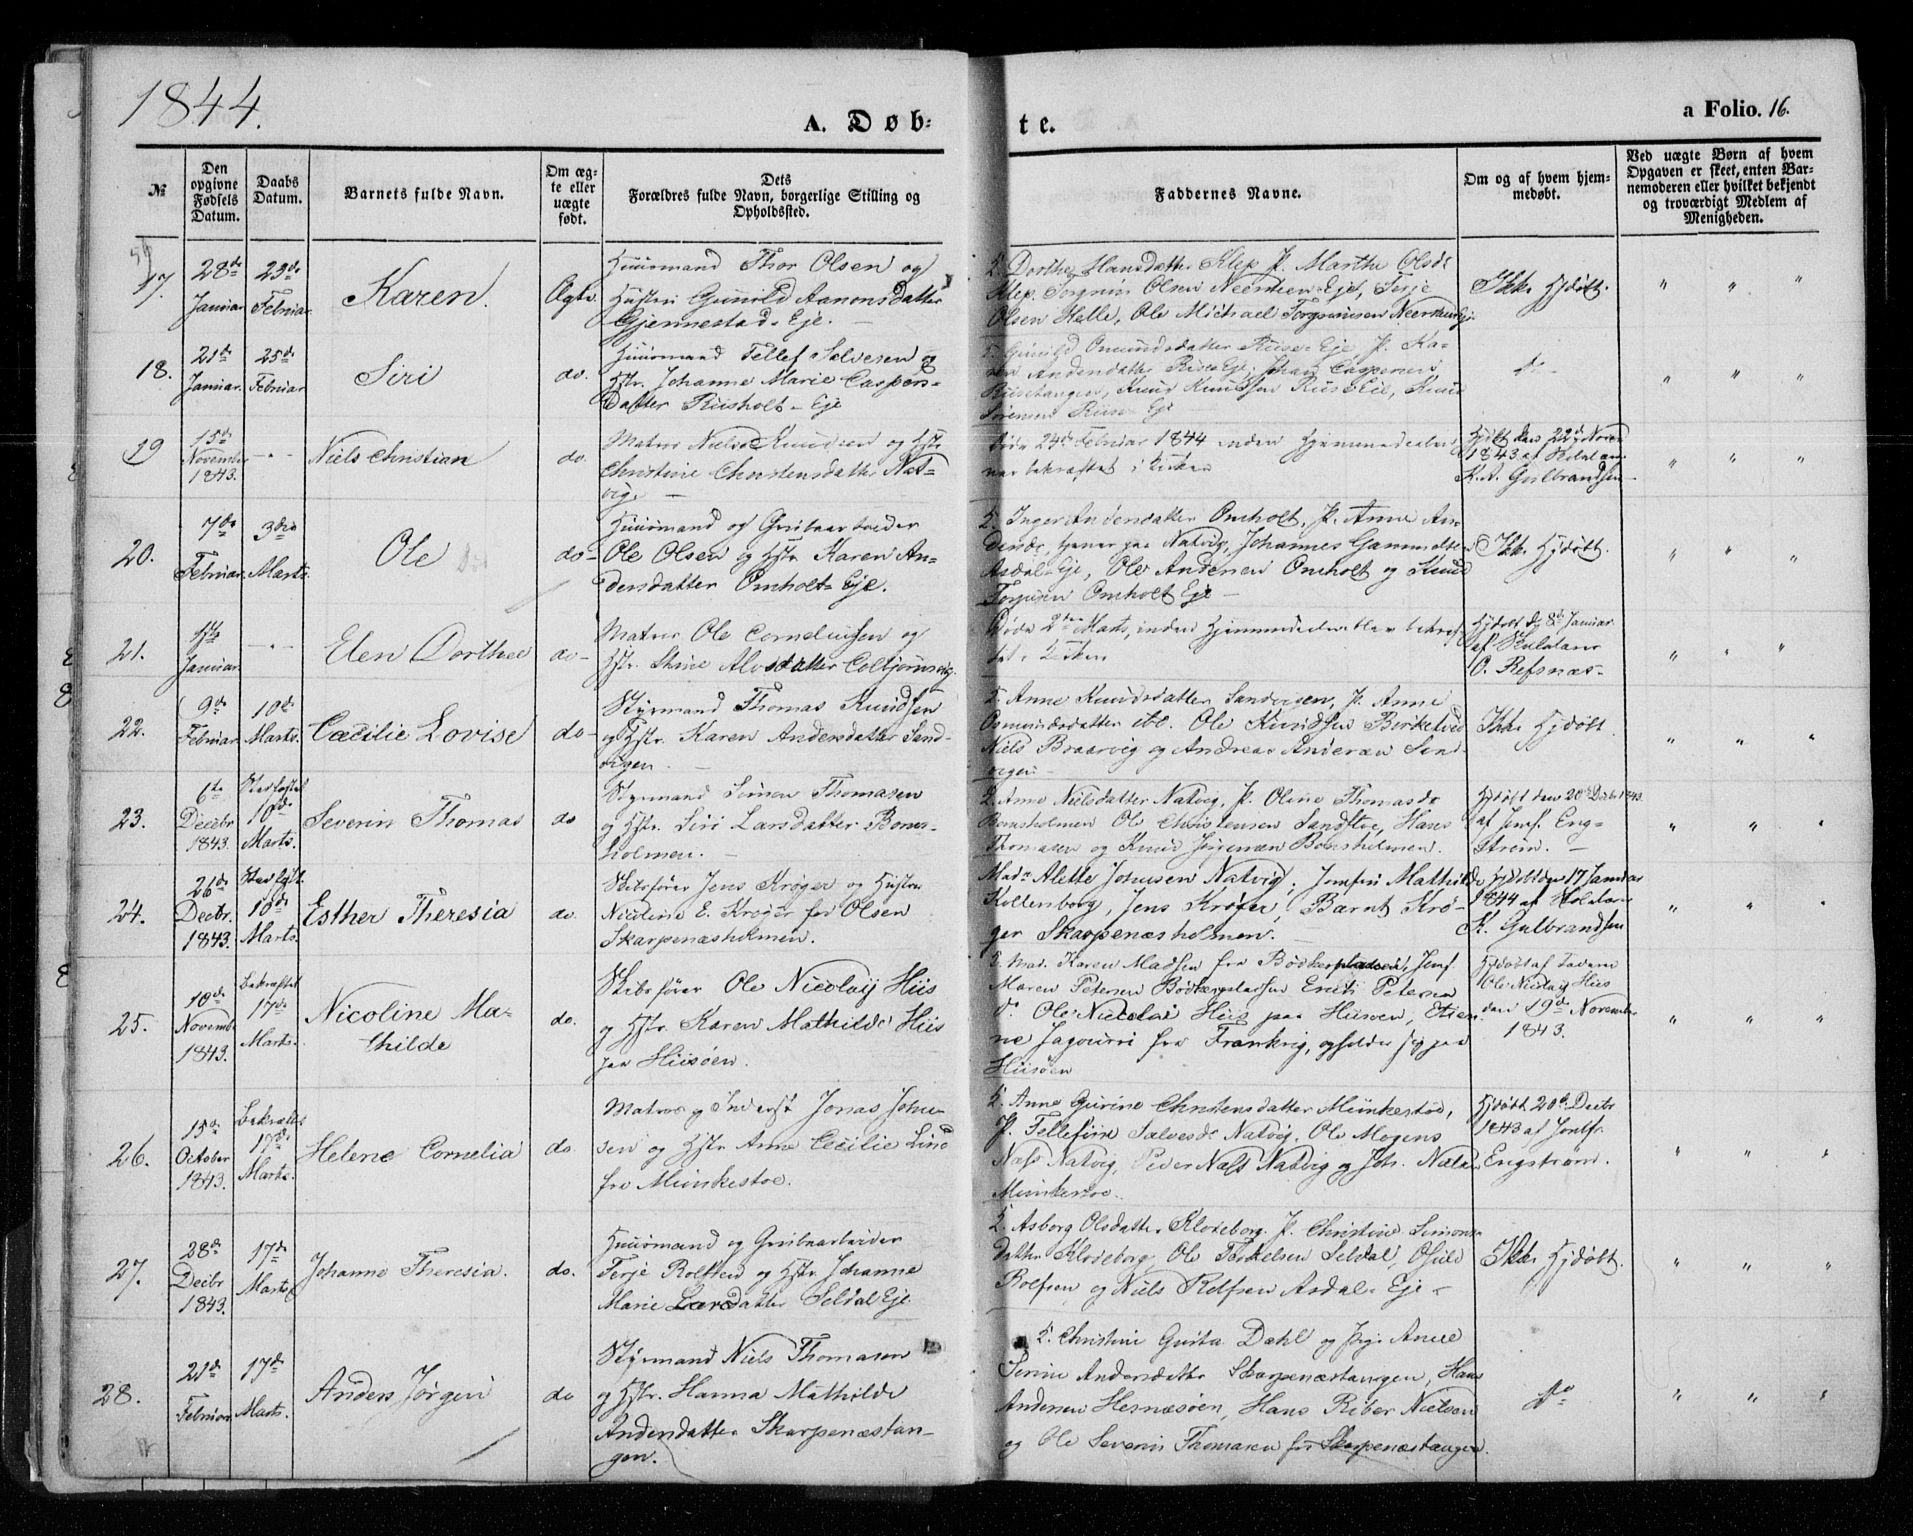 1844.
A. Døb-
te.
a Folio. 16.
№
Den opgivne Fødsels Datum.
Daabs Datum.
Barnets fulde Navn.
Om ægte eller uægte født.
Dets Forældres fulde Navn, borgerlige Stilling og Opholdssted.
Faddernes Navne.
Om og af hvem hjemmedøbt.
Ved uægte Børn af hvem Opgaven er skeet, enten Barnemoderen eller hvilket bekjendt og troværdigt Medlem af Menigheden.
17.
28de
Januar
23de
Februar
Karen.
Ægte.
Huusmand Thor Olsen og
Hustru Gunild Aanonsdatter
Gjennestad-Eje.
Dorthe Hansdatter Klep P. Marthe Olsdr
Klep. Torgrim Olsen Neersteen-Eje, Terje
Olsen Helle, Ole Michael Torgrimsen
Ikke Hjdøbt.
18.
21de
Januar.
25de
Februar
Siri
do.
Huusmand Tellef Salvesen og
Hstr. Johanne Marie Caspers-
datter Ruusholt-Eje
Gunild Omundsdatter Ruse-Eje P. Ka-
ren Andersdatter
Rusetangen, Knud Knudsen Ruse-Eie, Knud
Sørensen Ruse-Eje
19
15de
November
1843.
Niels Christian
do.
Matros Niels Knudsen og Hstr
Christine Christensdatter Nat-
vig.
Døde 24de Februar 1844 inden Hjemmedaaben
var bekræftet i Kirken
Hjdøbt den 22de Novbr
1843 af
K. A. Gulbrandsen
20.
7de
Februar.
3die
Marts.
Ole
do-
Huusmand og Grubearbeider
Ole Olsen og Hstr Karen An-
dersdatter Omholt-Eje.
Inger Andersdatter Omholt, P. Anne An-
dersdr, tjener paa Natvig, Johannes
Asdal-Eje, Ole Andersen Omholt og Knud
Torgusen Omholt Eje
Ikke Hjdøbt.
21.
1ste
Januar.
Elen Dorthee
do-
Matros Ole Corneliusen og
Hstr. Alvsdatter Colbjørnsvig.
Døde 2den Marts, inden Hjemmedaaben blev bekræf-
tet i Kirken
Hjdøbt d. 8de Januar
af
O. Refsnæs-
22.
9de
Februar
10de
Marts.
Cæcilie Lovise
do-
Styrmand Thomas Knudsen
og Hstr. Karen Andersdatter Sand-
vigen.
Anne Knudsdatter Sandvigen, P. Anne
Osmundsdatter ibd. Ole Knudsen
Niels Braarvig og Andreas Andersen Sand-
vigen
Ikke Hjdøbt.
23.
6te
Decbr
1843.
Stadfæstet
10de
Marts.
Severin Thomas
do
Styrmand Simon Thomasen
og Hstr. Siri Larsdatter Bones-
holmen.
Anne Nielsdatter Natvig, P. Oline Thomasdr
Bonesholmen Ole Christensen Sandstøe, Hans
Thomasen og Knud Jørgensen Bonesholmen.
Hjdøbt den 20de Decbr 1843
af Jomf. Eng-
strøm.
24.
26de
Decbr.
1843.
10de
Marts.
Esther Theresia
do.
Skibsfører Jens Krøger og Hustru
Nicoline E. Krøger født Olsen
Skarpenæsholmen.
Madm Alette Johnsen Natvig; Jomfru Mathilde
Koltenborg, Jens Krøger, Bærnt Krø-
ger Skarpenæsholmen.
Hjdøbt den 17 Januar
1844 af
K. Gulbrandsen
25.
19de
Novembr
1843.
Bekræftet
17de
Marts.
Nicoline Ma-
thilde
do.
Skibsfører Ole Nicolaij Hiis
og Hstr. Karen Mathilde Hiis
paa Hiisøen.
Mad. Karen Madsen fra Bødkerpladsen, Jomf.
Maren Petersen Bødkerpladsen
Ole Nicolai Hiis paa Hiisøen, Etien-
ne Jagourri fra Frankrig, opholder sig paa
Hiisøen
Hjdøbt af Faderen
Ole Nicolay Hiis
den 19de Novembr
1843.
26.
15de
October
1843.
Bekræftet
17de
Marts.
Helene Cornelia
do.
Matros og Inderst Jonas John-
sen og Hstr Anne Cecilie Lind
fra Munkestøe.
Anne Gurine Christensdatter Munkestøe,
P. Tellefine Salvesdr Natvig, Ole Mogens
Næss Natvig, Peder Næss Natvig og Joh.
Munkestøe.
Hjdøbt 20de Decbr
1843 af Jomfr.
Engstrøm.
27.
28de
Decbr
1843.
17de
Marts
Johanne Theresia.
do.
Huusmand og Grubearbeider
Terje Rolfsen og Hstr Johanne
Marie Larsdatter Seldal Eje
Asborg Olsdatter Kloveborg P. Christine Simons-
datter Kloveborg, Ole Terkelsen Seldal,
Rolfsen og Niels Rolfsen Asdal-Eje-
Ikke Hjdøbt.
28.
21de
Februar
17de
Marts.
Anders Jørgen
do
Styrmand Niels Thomasen
og Hstr. Hanna Mathilde
Andersdatter Skarpenæstan-
gen.
Christine Gusta Dahl og Pig. Anne
Serine Andersdatter Skarpenæstangen, Hans
Andersen Hesnæsøen, Hans Riber Nielsen
og Ole Severin Thomasen fra Skarpenæstangen.
do